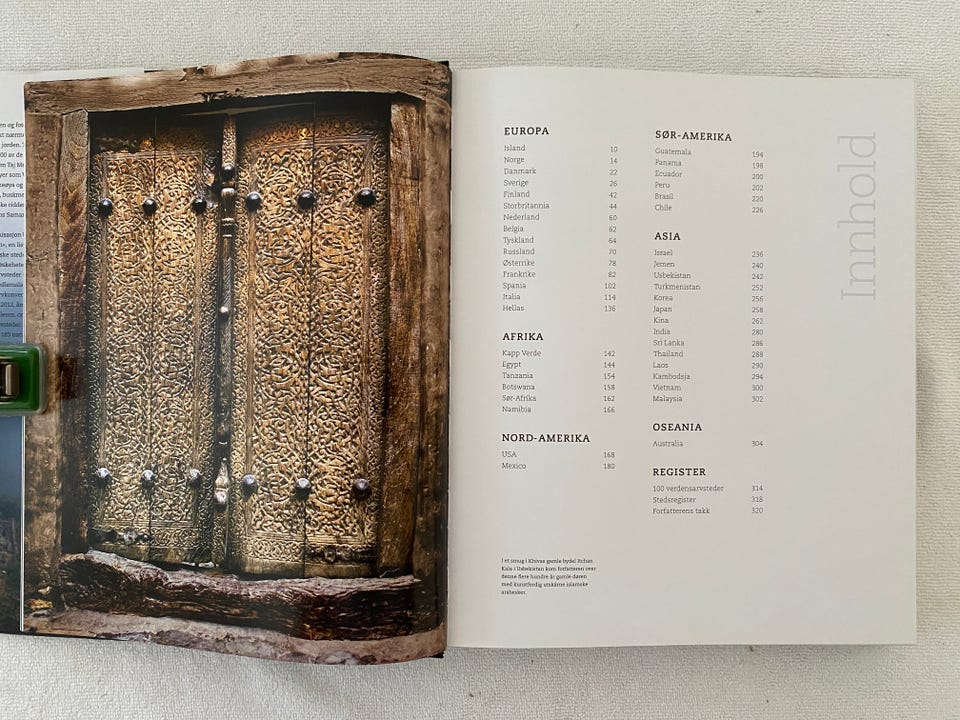 en og fo
jorden.
00 av de
m Taj Me
yer som
buskme
ske ridde
ns Sama
en lis
ske stede
iskehete
rvsteder
2012, än
leum, or
183 nas
EUROPA
Island 10
Norge 14
Danmark 22
Sverige 26
Finland 42
Storbritannia 44
Nederland 60
Belgia 62
Tyskland 64
Russland 70
Østerrike 78
Frankrike 82
Spania 102
Italia 114
Hellas 136
AFRIKA
Kapp Verde 142
Egypt 144
Tanzania 154
Botswana 158
Sør-Afrika 162
Namibia 166
NORD-AMERIKA
USA 168
Mexico 180
I et smug i Khivas gamle bydel Itchan
Kala i Usbekistan kom forfatteren over
denne flere hundre år gamle døren
med kunstferdig utskårne islamske
arabesker.
SØR-AMERIKA
Guatemala 194
Panama 198
Ecuador 200
Peru 202
Brasil 220
Chile 226
ASIA
Israel 236
Jemen 240
Usbekistan 242
Turkmenistan 252
Korea 256
Japan 258
Kina 262
India 280
Sri Lanka 286
Thailand 288
Laos 290
Kambodsja 294
Vietnam 300
Malaysia 302
OSEANIA
Australia 304
REGISTER
100 verdensarvsteder 314
Stedsregister 318
Forfatterens takk 320
Innhold